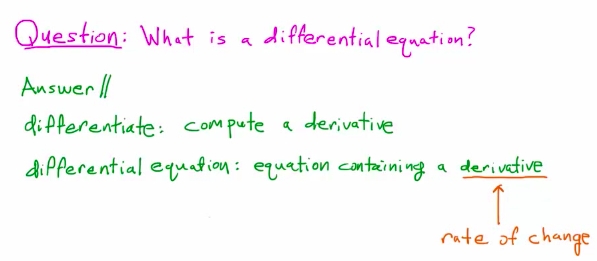 Question: What is a differential equation?
Answer //
differentiate: compute a derivative
differential equation: equation containing a derivative
rate of change